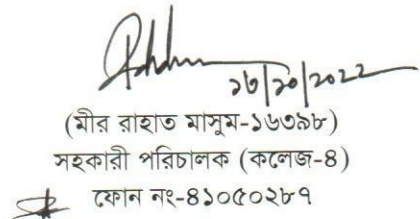 ১৬/১০/২০২২
(মীর রাহাত মাসুম-১৬৩৯৮)
সহকারী পরিচালক (কলেজ-৪)
ফোন নং-৪১০৫০২৮৭